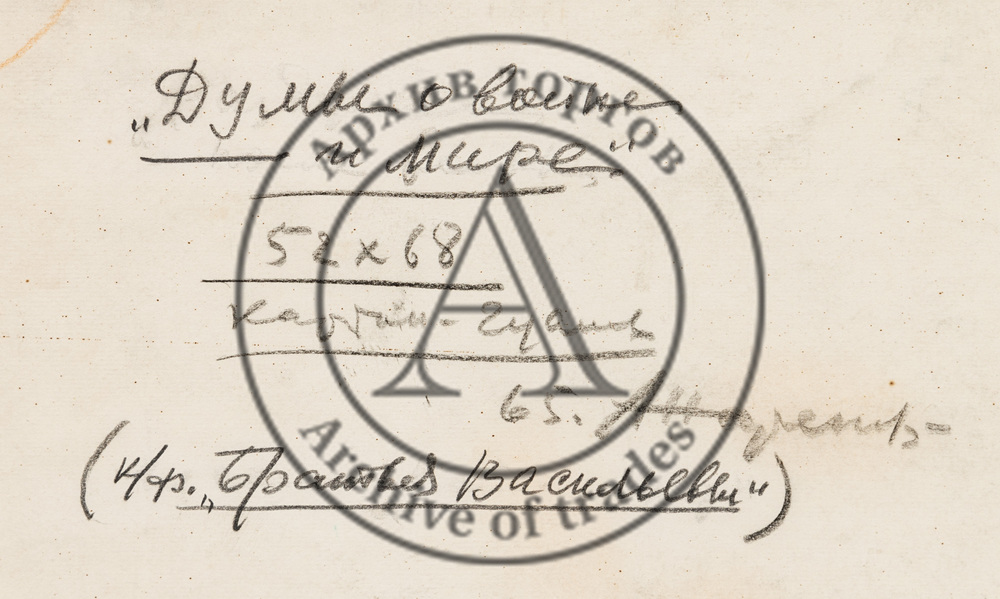 „Думы о войне
и мире"
52 х 68
картон - гуашь
65.
(к/ф. „Братья Васильевы")
Архив торгов
Archive of trades